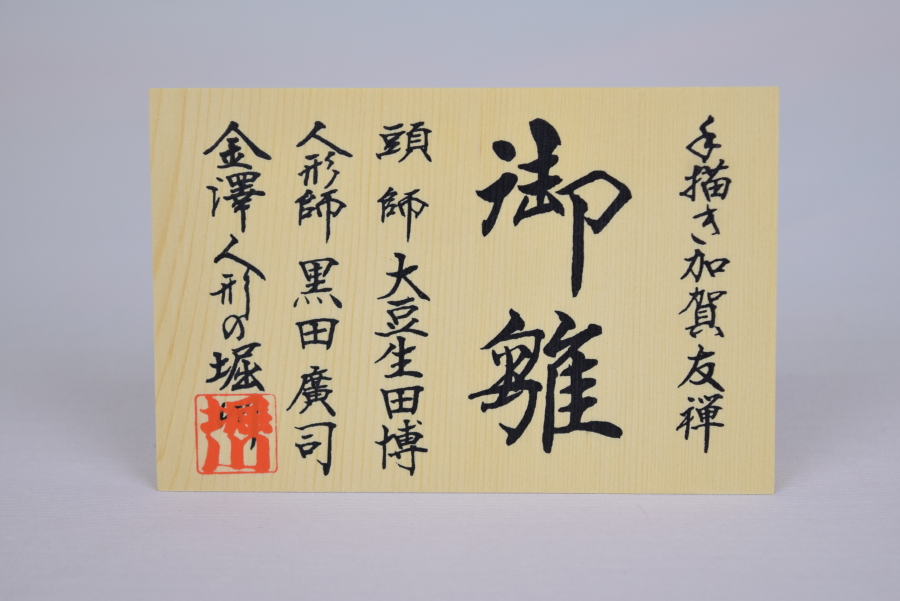 手描き加賀友禅
御雛
頭師 大豆生田博
人形師 黒田廣司
金澤人形の堀川
堀川